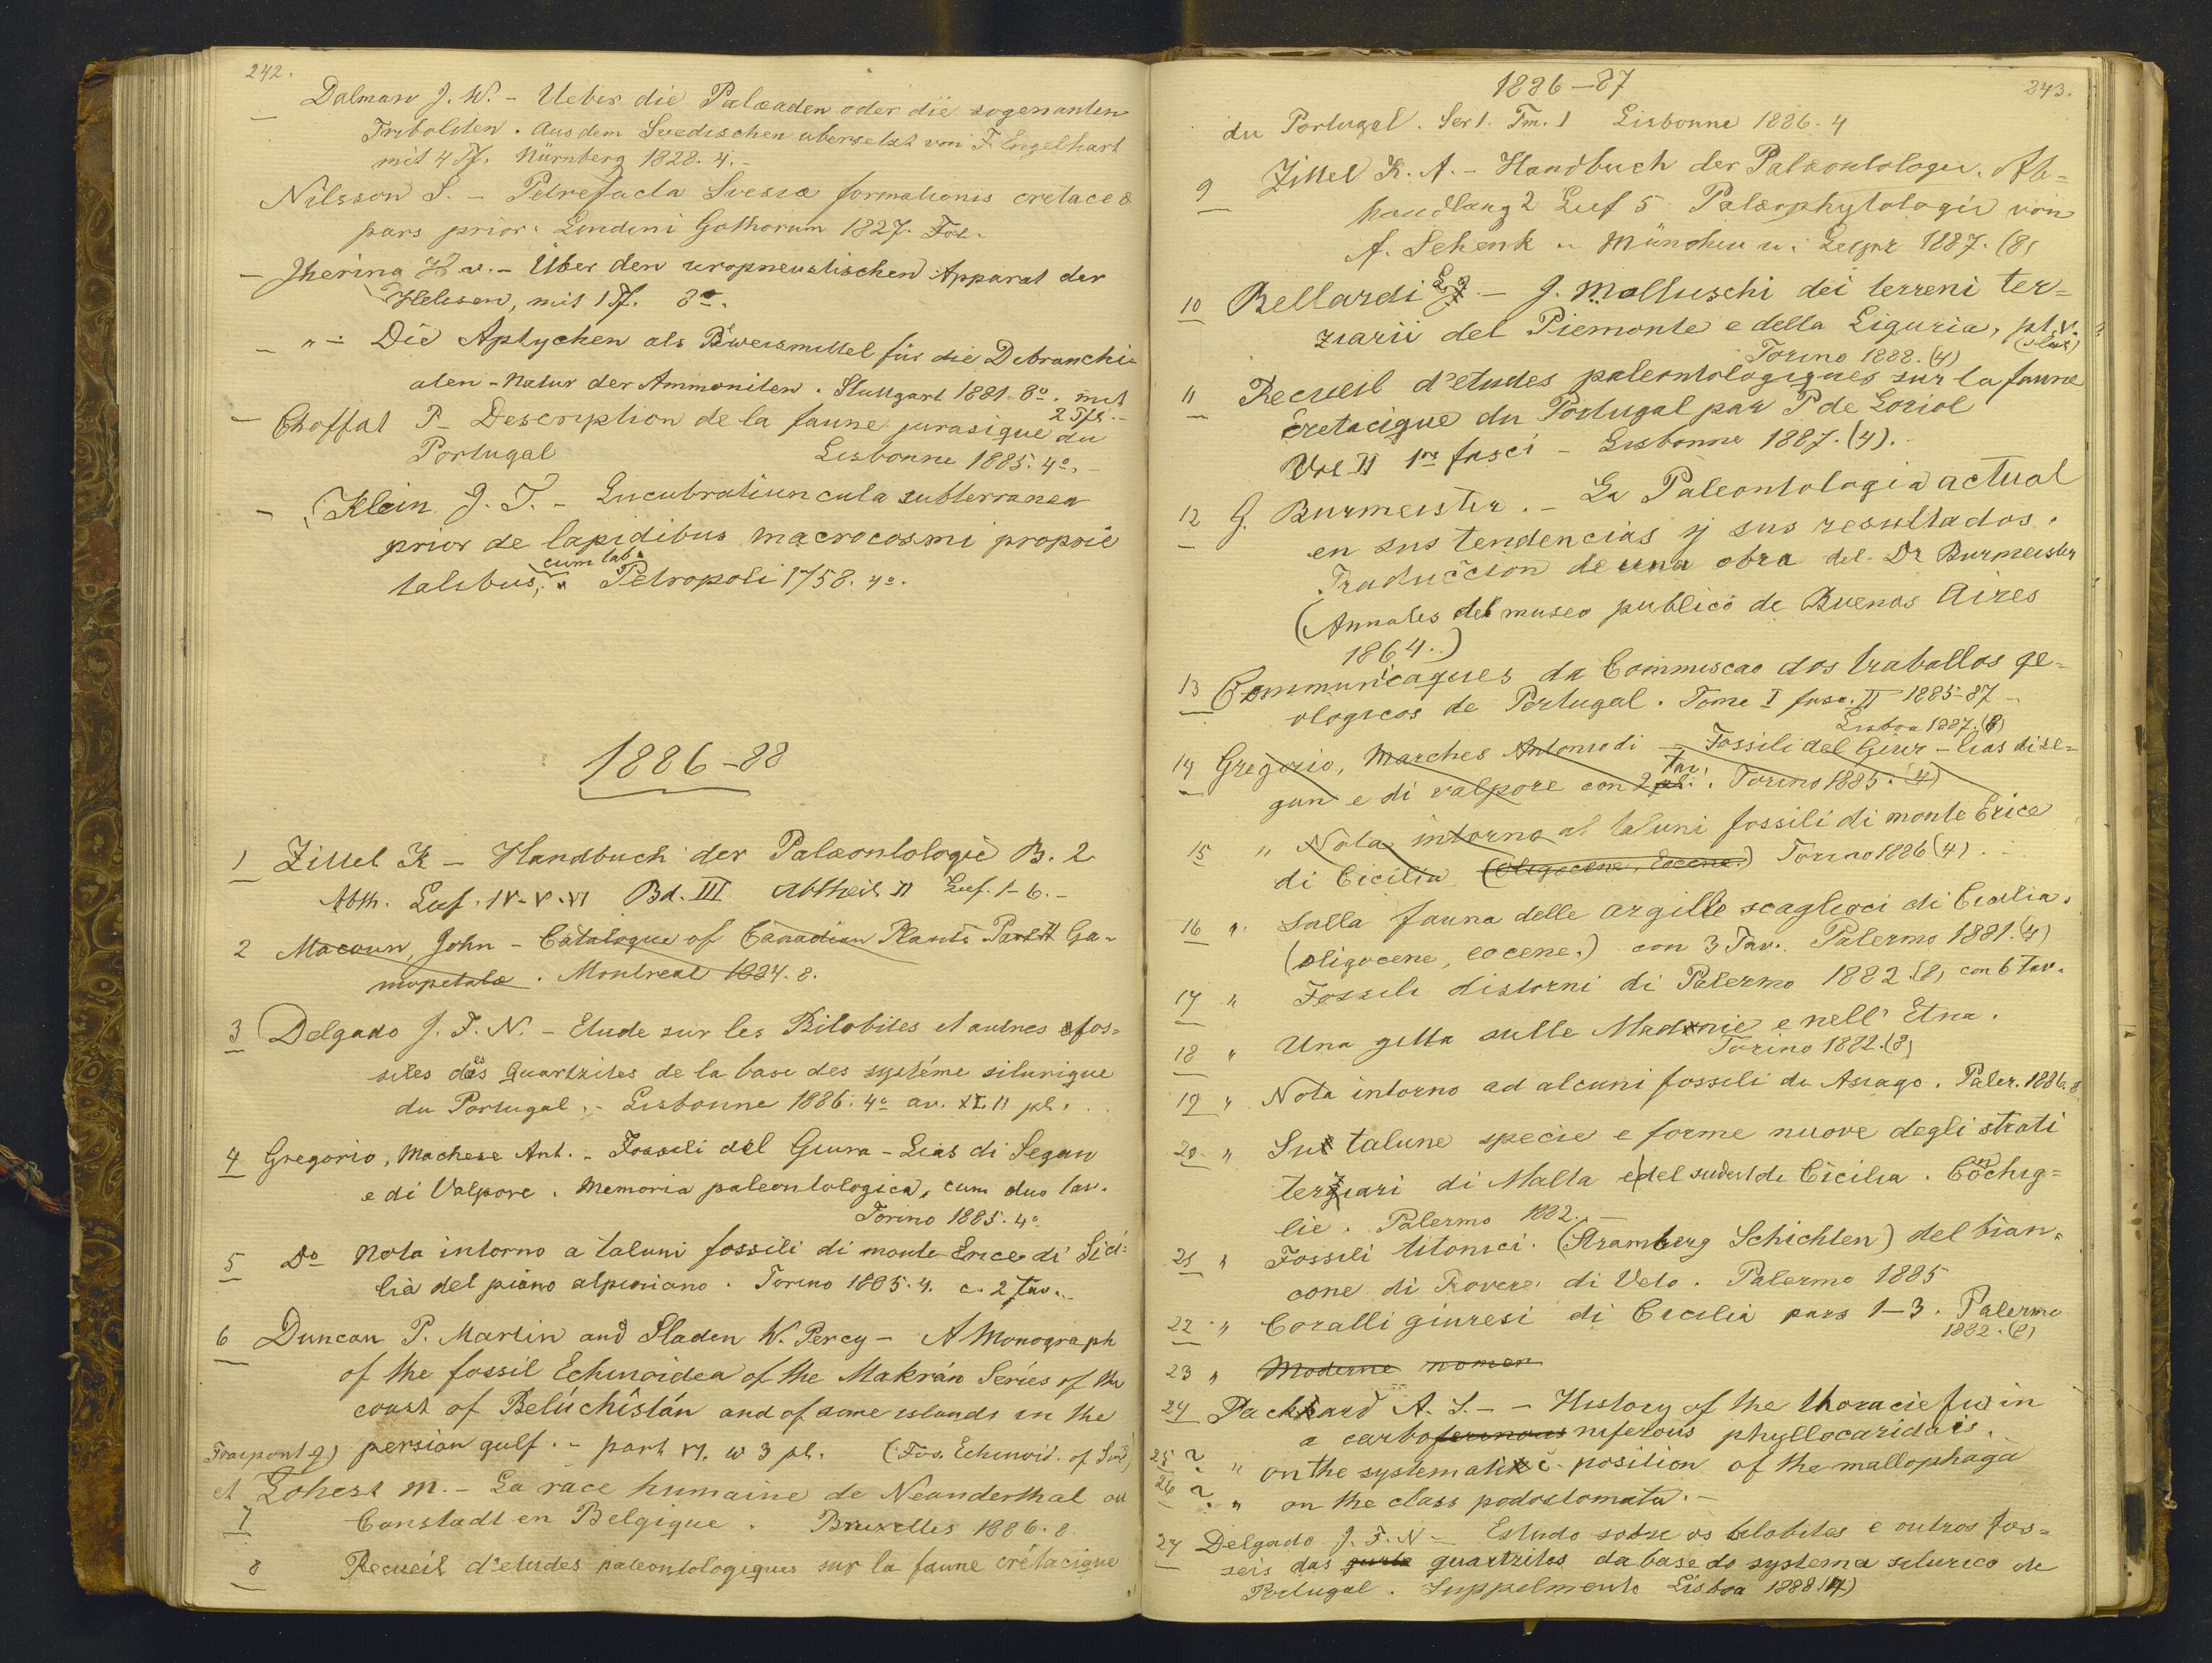 242.
Dalman J. W. - Ueber die Palæaden oder die sogenanten
Trilobiten. Aus dem Svedischen übersetzt von F. Engelhart
mit 4 Tf. Nürnberg 1828. 4. -
Nilsson S. - Petrefacta Svecia formationis cretaceæ
pars prior. Londini Gothorum 1827. Fol.
- Jhering H v. - Über den uropneustischen Apparat der
Heliceen, mit 1 Tf. 8º.
- " - Die Aptychen als Beweismittel für die Dibranchi-
aten-Natur der Ammoniten. Stuttgart 1881. 8º. mit
2 Tfl. -
- Choffat P - Description de la faune jurasique du
Portugal Lisbonne 1885. 4º. -
- Klein J. T. - Lucubratiuncula subterranea
prior de lapidibus macrocosmi proprie
talibus, cum tab. Petropoli 1758. 4º.
1886-88
1 Zittel K - Handbuch der Palæontologie B. 2
Abth. Lief. IV-V-VI Bd. III Abtheil II Lief. 1-6. -
2 Macoun, John - Catalogue of Canadian Plants Part II Ga-
mopetalæ. Montreal 1884. 8.
3 Delgado J. F. N. - Etude sur les Bilobites et autres fos=
siles des Quartzites de la base des systéme silurique
du Portugal. - Lisbonne 1886. 4º av. XLII pl.
4 Gregorio, Machese Ant. - Fossili del Giura-Lias di Segan
e di Valpore. Memoria paleontologica, cum duo tav.
Torino 1885. 4º
5 Dº Nota intorno a taluni fossili di monte Erice di Sici=
lia del piano alpiniano. Torino 1885. 4. c. 2 Tav.
6 Duncan P. Martin and Sladen W. Percy - A Monograph
of the fossil Echinoidea of the Makrán Series of the
coast of Belúchîstán and of some islands in the
persian gulf. - part VI. w 3 pl. (Fos. Echinoid. of Sind)
Fraipont J)
et Lohest M. - La race humaine de Neanderthal ou
7 Canstadt en Belgique. Bruxelles 1886. 8
8 Recueil d'etudes paleontologiques sur la faune crétacique
1886-87
243.
du Portugal. Ser 1. Tm. 1 Lisbonne 1886. 4
9 Zittel K. A. - Handbuch der Palæontologie. Ab=
handlung 2 Lief 5 Palæophytologie von
A. Schenk - München u. Leipz 1887. (8)
10 Bellardi L. - J. Molluschi dei terreni ter=
ziarii del Piemonte e della Liguria, pt. V.
Torino 1888. (4)
11 Recueil d'etudes paleontologiques sur la faune
Cretacique du Portugal par P de Loriol
Vol II 1er fasci - Lisbonne 1887. (4). -
12 G. Burmeister. - La Paleontologia actual
en sus tendencias y sus resultados.
Traduccion de una obra del Dr Burmeister
(Annales del museo publico de Buenos Aires
1864.)
13 Communicaques da Commiscao dos traballos ge=
ologicos de Portugal. Tome I fasc. II 1885-87 -
Lisboa 1887. (8)
14 Gregorio, Marches Antonio di - Fossili del Giur-lias di Se=
gan e di valpore con 2 Tav. Torino 1885. (4)
15 " Nota intorno al taluni fossili di monte Erice
di Cicilia (Oligocene, Eocene.) Torino 1886 (4).
16 " Sulla fauna delle argille scagliori di Cicilia.
(oligocene, eocene.) con 3 Tav. Palermo 1881. (4)
17 " Fossili distorni di Palermo 1882 (8) con 6 tav.
18 " Una gitta sulle Madonie e nell' Etna.
Torino 1882. (8)
19 " Nota intorno ad alcuni fossili di Asiago. Paler. 1886. 8
20 " Su talune specie e forme nuove degli strati
terziari di Malta e del sudest di Cicilia. Conchig=
lie. Palermo 1882. -
21 " Fossili titonici. (Stramberg Schichten) del bian=
cone di Rovere di Velo. Palermo 1885
22 " Coralli giuresi di Cicilia pars 1-3. Palermo
1882. (8)
23 " Moderne nomen
24 Packard A. S. - - History of the thoracie fut in
a carboniferous phyllocaridais.
25 ? " on the systematic position of the mallophaga
26 ? " on the class podostomata. -
27 Delgado J. F. N - Estudo sobre os bilobites e outros fos=
seis das quartzites da base do systema silurico de
Portugal. Suppelmento Lisboa 1888. (4)